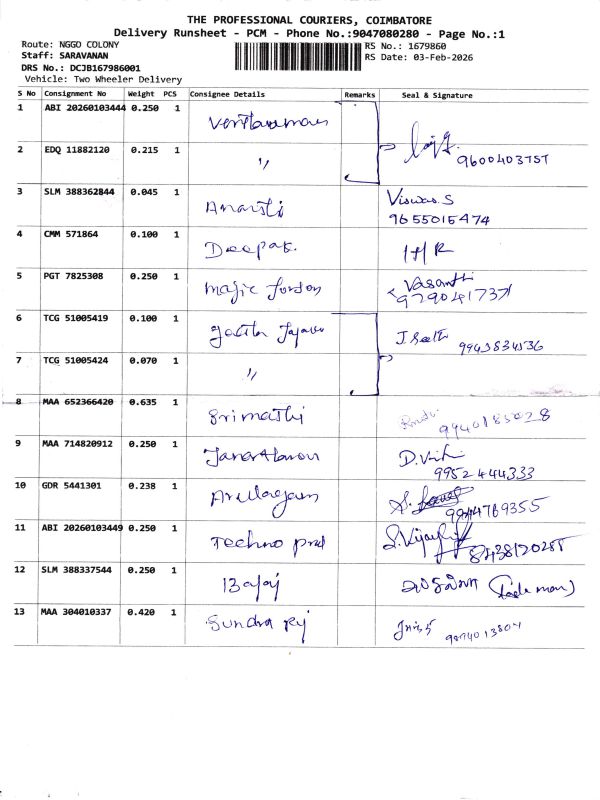 THE PROFESSIONAL COURIERS, COIMBATORE
Delivery Runsheet - PCM - Phone No.:9047080280 - Page No.:1
Route: NGGO COLONY
Staff: SARAVANAN
DRS No.: DCJB167986001
Vehicle: Two Wheeler Delivery
RS No.: 1679860
RS Date: 03-Feb-2026
S No Consignment No Weight PCS Consignee Details Remarks Seal & Signature
1 ABI 20260103444 0.250 1
2 EDQ 11882120 0.215 1 " 9600403757
3 SLM 388362844 0.045 1 Viswas.S
9655015474
4 CMM 571864 0.100 1 Deepak.
5 PGT 7825308 0.250 1 Magic Vasanthi
9790417371
6 TCG 51005419 0.100 1 9943834536
7 TCG 51005424 0.070 1 "
8 MAA 652366420 0.635 1 Srimathi 9940183028
9 MAA 714820912 0.250 1 Janarthanan
9952444333
10 GDR 5441301 0.238 1 9944769355
11 ABI 20260103449 0.250 1 Techno
12 SLM 388337544 0.250 1 Bajaj
13 MAA 304010337 0.420 1 Sundra